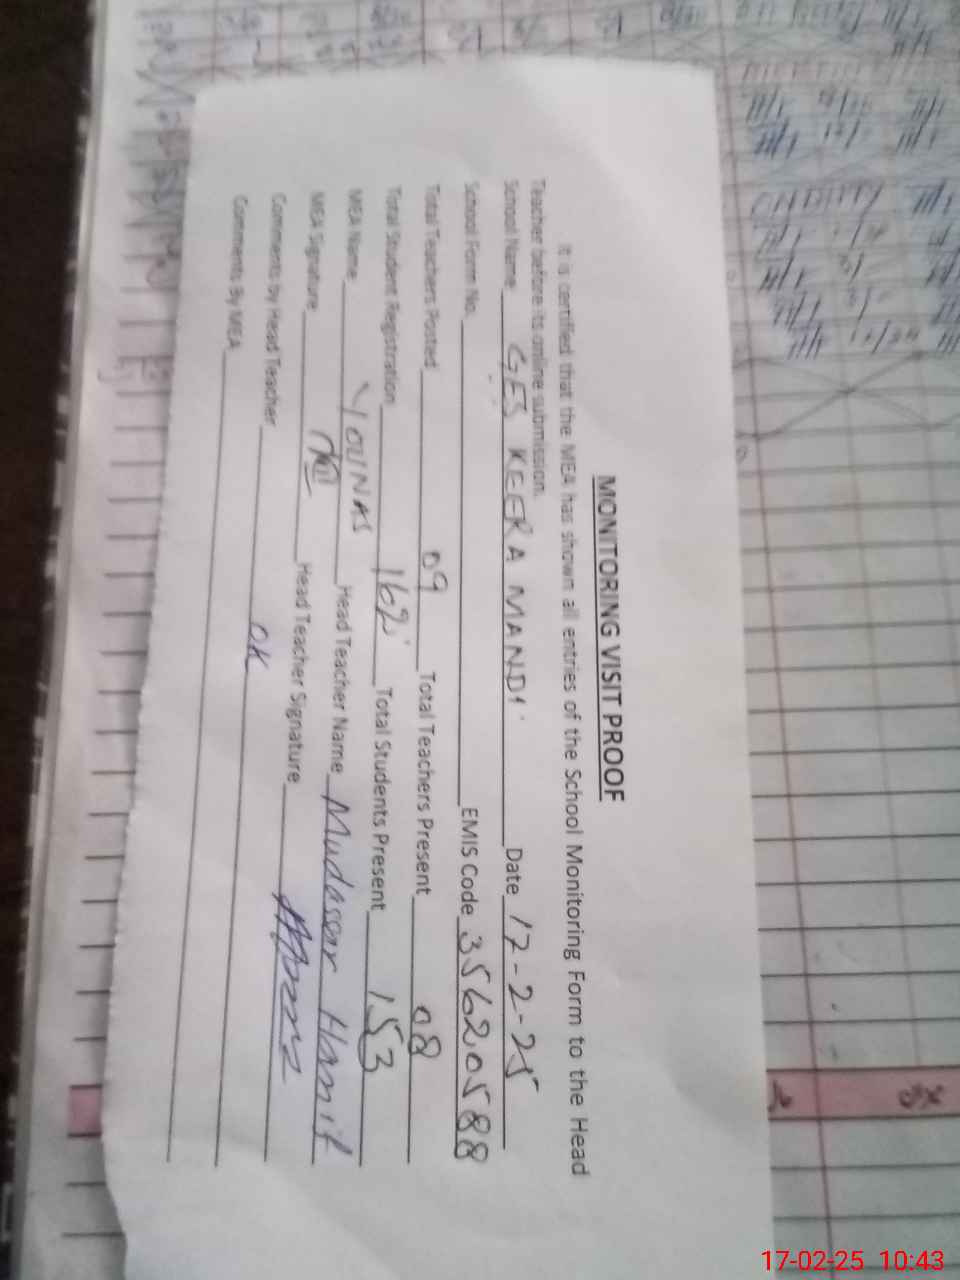 MONITORING VISIT PROOF
It is certified that the MEA has shown all entries of the School Monitoring Form to the Head
Teacher before its online submission.
School Name GES KEERA MANDI Date 17-2-25
School Form No. EMIS Code 35620588
Total Teachers Posted 09 Total Teachers Present 08
Total Student Registration 162 Total Students Present 153
MEA Name YOUNAS Head Teacher Name Mudassar Hanif
MEA Signature Head Teacher Signature
Comments by Head Teacher OK
Comments By MEA
17-02-25 10:43